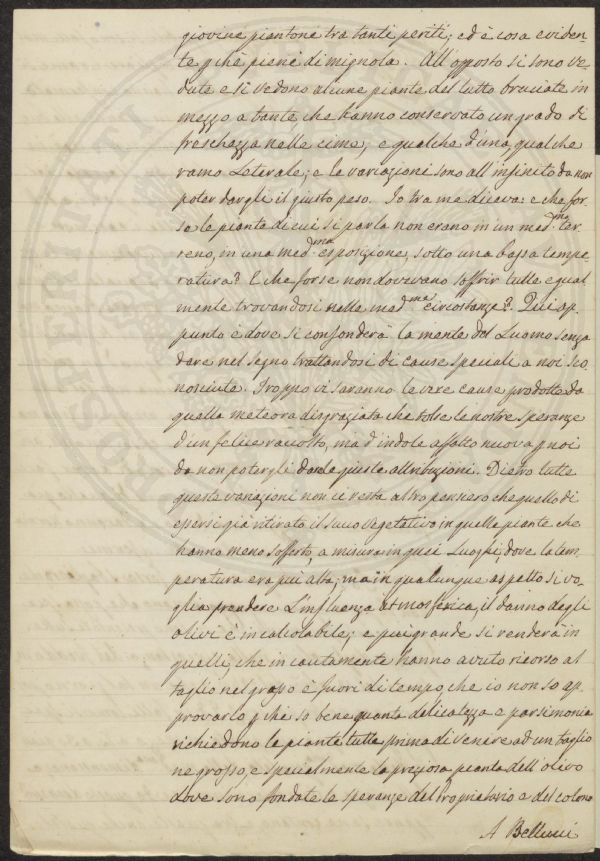 giovine piantone tra tanti periti; ed è cosa eviden-
te p chè piene di mignola. All'opposto si sono ve-
dute e si vedono alcune piante del tutto bruciate in
mezzo a tante che hanno conservato un grado di
freschezza nelle cime, e qualche d'una, qualche
ramo Laterale, e le variazioni sono all'infinito da non
poter dargli il giusto peso. Io tra me diceva: e che for-
se le piante di cui si parla non erano in un med.mo ter-
reno, in una med.ma esposizione, sotto una bassa tempe-
ratura? E che forse non dovevano soffrir tutte egual-
mente trovandosi nelle med.me circostanze? Qui ap-
punto è dove si confonderà la mente del Luomo senza
dare nel segno trattandosi di cause speciali a noi sco-
nosciute. Troppo vi saranno le vere cause prodotte da
quella meteora disgraziata che tolse le nostre speranze
d'un felice raccolto, ma d'indole affatto nuova p noi
da non potergli dare le giuste attribuzioni. Dietro tutte
queste variazioni non ci resta altro pensiero che quello di
essersi già ritirato il succo vegetativo in quelle piante che
hanno meno sofferto, a misura in quei Luoghi, dove la tem-
peratura era più alta; ma in qualunque aspetto si vo-
glia prendere L'influenza atmosferica, il danno degli
olivi è incalcolabile; e più grande si renderà in
quelli, che incautamente hanno avuto ricorso al
taglio nel grosso è fuori di tempo, che io non so ap-
provarlo p chè so bene quanta delicatezza e parsimonia
richiedono le piante tutte prima di venire ad un taglio
ne grosso, e specialmente la preziosa pianta dell'olivo
dove sono fondate le speranze del Proprietario e del colono
A Bellucci